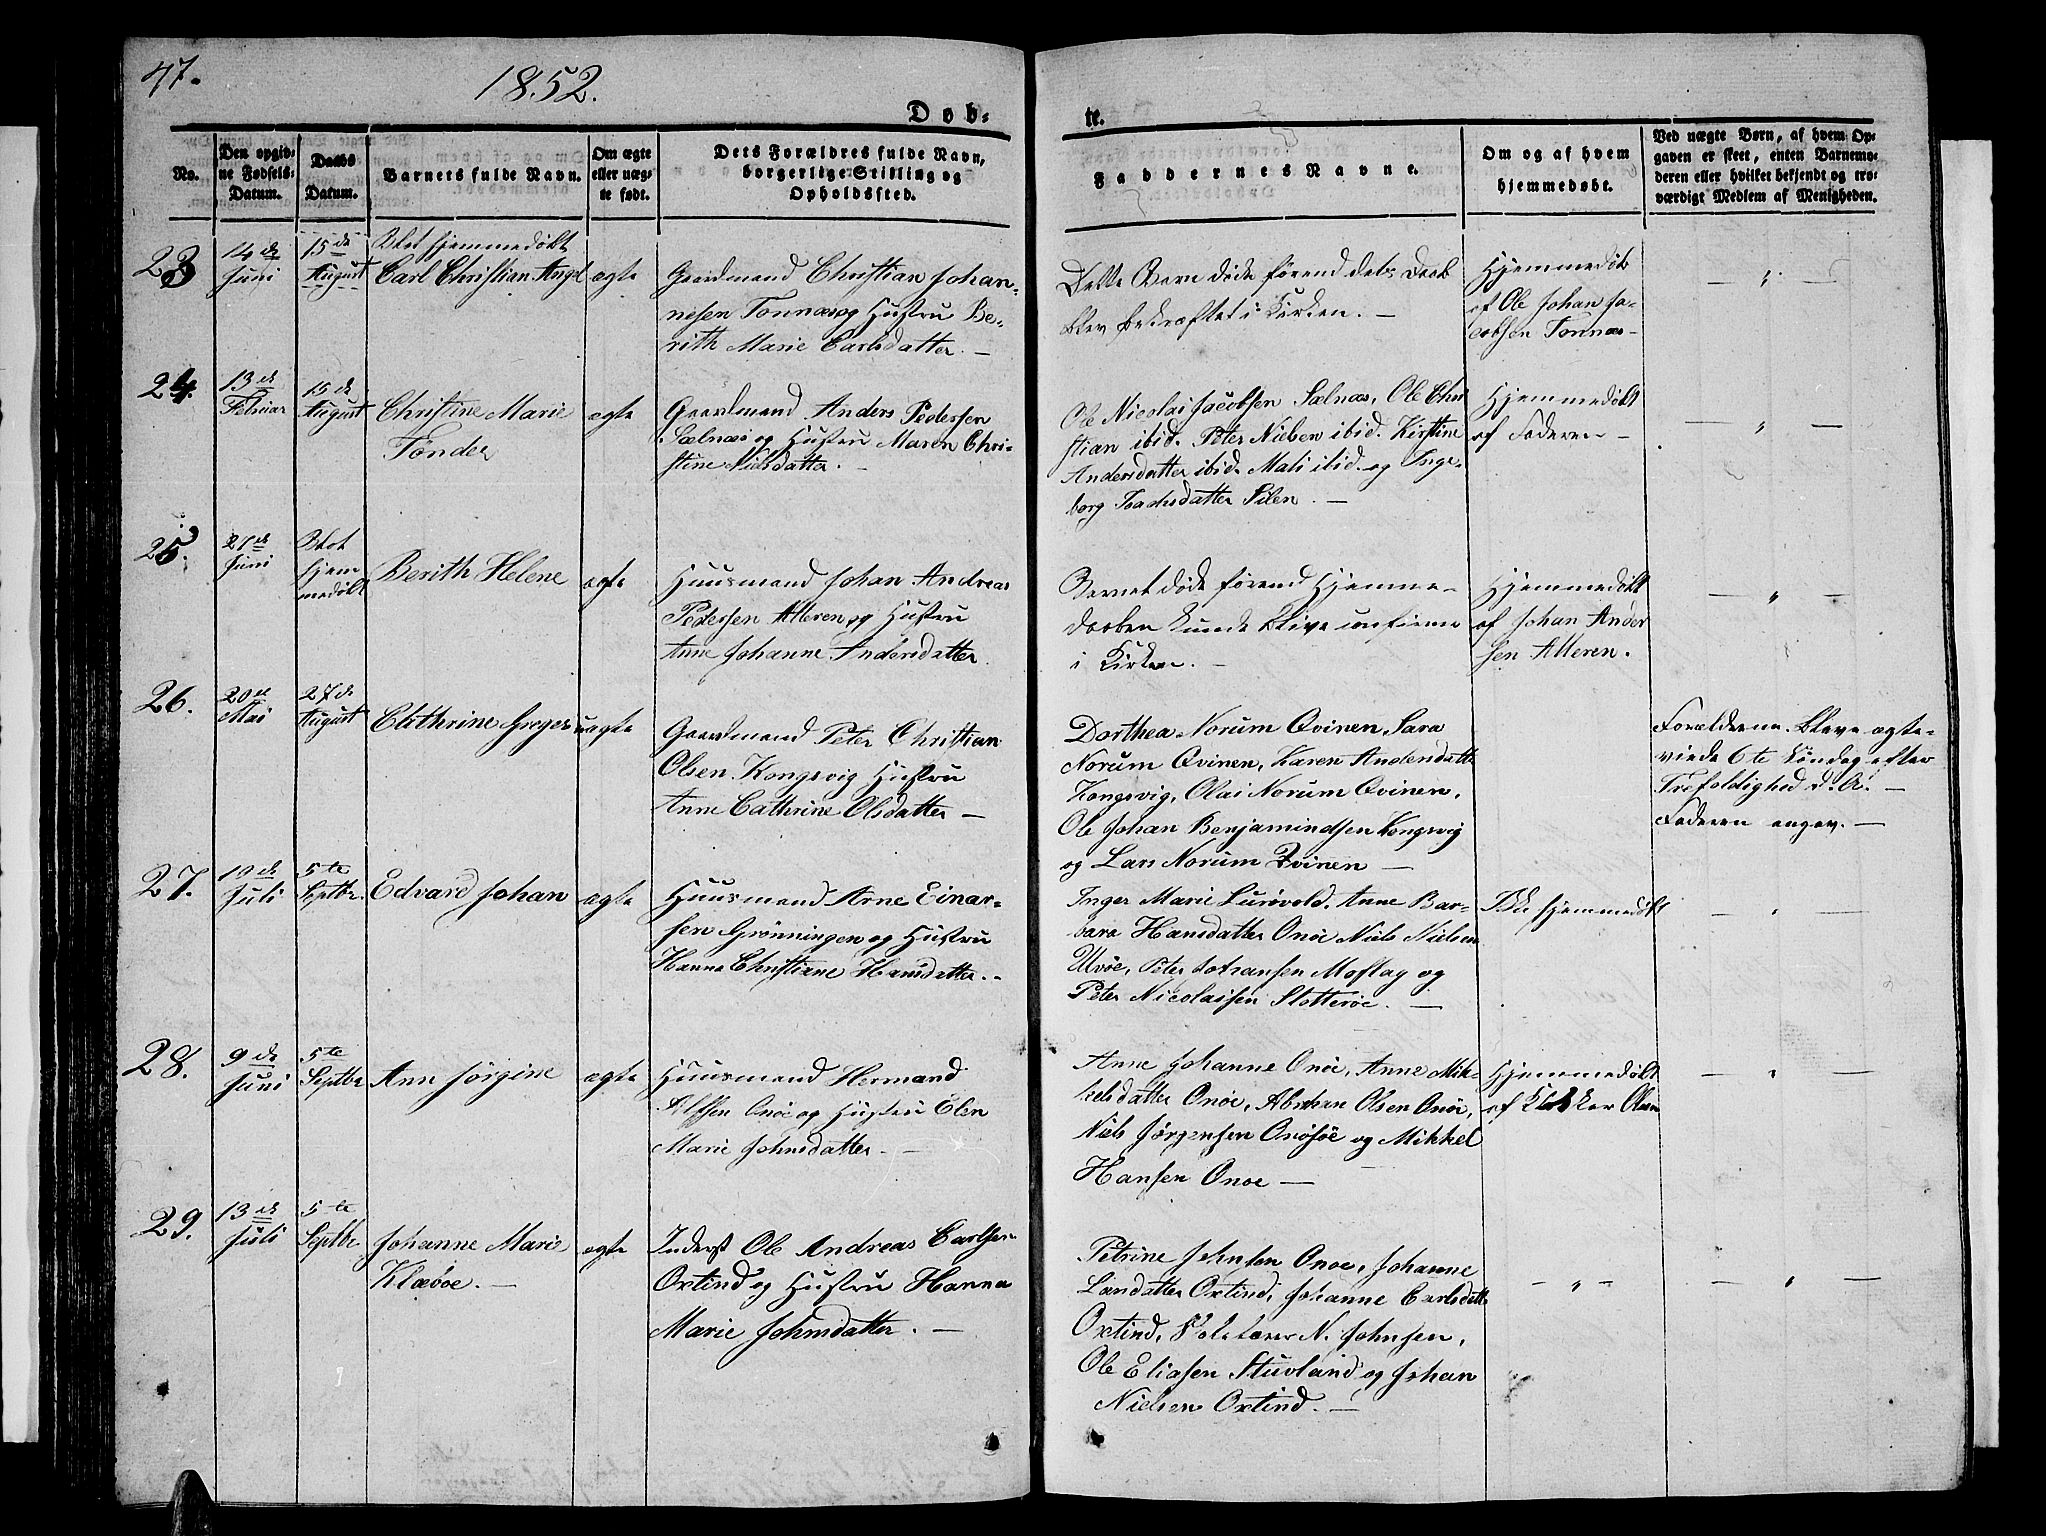 47.
1852.
Døb-
te.
No.
Den opgiv-
ne Fødsels-
Datum.
Daabs
Datum.
Barnets fulde Navn.
Om ægte
eller uæg-
te født.
Dets Forældres fulde Navn,
borgerlige Stilling og
Opholdssted.
Faddernes Navne.
Om og af hvem
hjemmedøbt.
Ved uægte Børn, af hvem Op-
gaven er skeet, enten Barnemo-
deren eller hvilket bekjendt og tro-
værdigt Medlem af Menigheden.
23
14de
Juni
15de
August
Blot hjemmedøbt
Carl Christian Angel
ægte
Gaardmand Christian Johan-
nesen Tonnæs og Hustru Be-
rith Marie Carlsdatter. —
Dette Barn døde førend dets Daab
blev bekræftet i Kirken. —
Hjemmedøbt
af Ole Johan Ja-
cobsen Tonnæs —
— " —
24.
13de
Februar
15de
August
Christine Marie
Tonder
ægte
Gaardmand Anders Pedersen
Sælnæs og Hustru Maren Chri-
stine Nielsdatter. —
Ole Nicolai Jacobsen Sælnæs, Ole Chri
stian ibid. Peter Nielsen ibid. Kirstine
Andersdatter ibid. Mali ibid. og Inge-
borg Isachsdatter Silen. —
Hjemmedøbt
af Faderen —
— " —
25.
27de
Juni
Blot
hjem
medøbt
Berith Helene
ægte
Huusmand Johan Andreas
Pedersen Alteren og Hustru
Anne Johanne Andersdatter.
Barnet døde førend Hjemme-
daaben kunde blive confirme
i Kirken. —
Hjemmedøbt
af Johan Ander
sen Alteren.
— " —
26.
20de
Mai
27de
August
Cathrine Gregersuægte
Gaardmand Peter Christian
Olsen Kongsvig Hustru
Anne Cathrine Olsdatter —
Dorthea Norum Qvinen, Sara
Norum Qvinen, Karen Andersdatt
Kongsvig, Olai Norum Qvinen,
Ole Johan Benjamindsen Kongsvig
og Lars Norum Qvinen —
Forældrene bleve ægte-
viede 6te Søndag efter
Trefoldighed d. A. —
Faderen angav. —
27.
19de
Juli
5te
Septbr.
Edvard Johan
ægte
Huusmand Arne Einar-
sen Grønningen og Hustru
Hanna Christiane Hansdatter. -
Inger Marie Lurøvold, Anne Bar-
bara Hansdatter Onøe Niels Nielsen
Urøe, Peter Johansen Moflag og
Peter Nicolaisen Slotterøe. —
Ikke hjemmedøbt
— " —
28.
9de
Juni
5te
Septbr
Ann Jørgine
ægte
Huusmand Hermand
Alfsen Onøe og Hustru Elen
Marie Johnsdatter. —
Anne Johanne Onøe, Anne Mik-
kelsdatter Onøe, Abraham Olsen Onøe,
Niels Jørgensen Onøsøe og Mikkel
Hansen Onoe —
Hjemmedøbt
af Klokker Olsen
— " —
29.
13de
Juli
5te
Septbr.
Johanne Marie
Klæboe. —
ægte
Inderst Ole Andreas Carlsen
Oxtind og Hustru Hanna
Marie Johnsdatter. —
Petrine Johnsen Onoe, Johanne
Larsdatter Oxtind, Johanne Carlsdatt
Oxtind, N. Johnsen,
Ole Eliasen Stuvland og Johan
Nielsen Oxtind. —
— " —
— " —